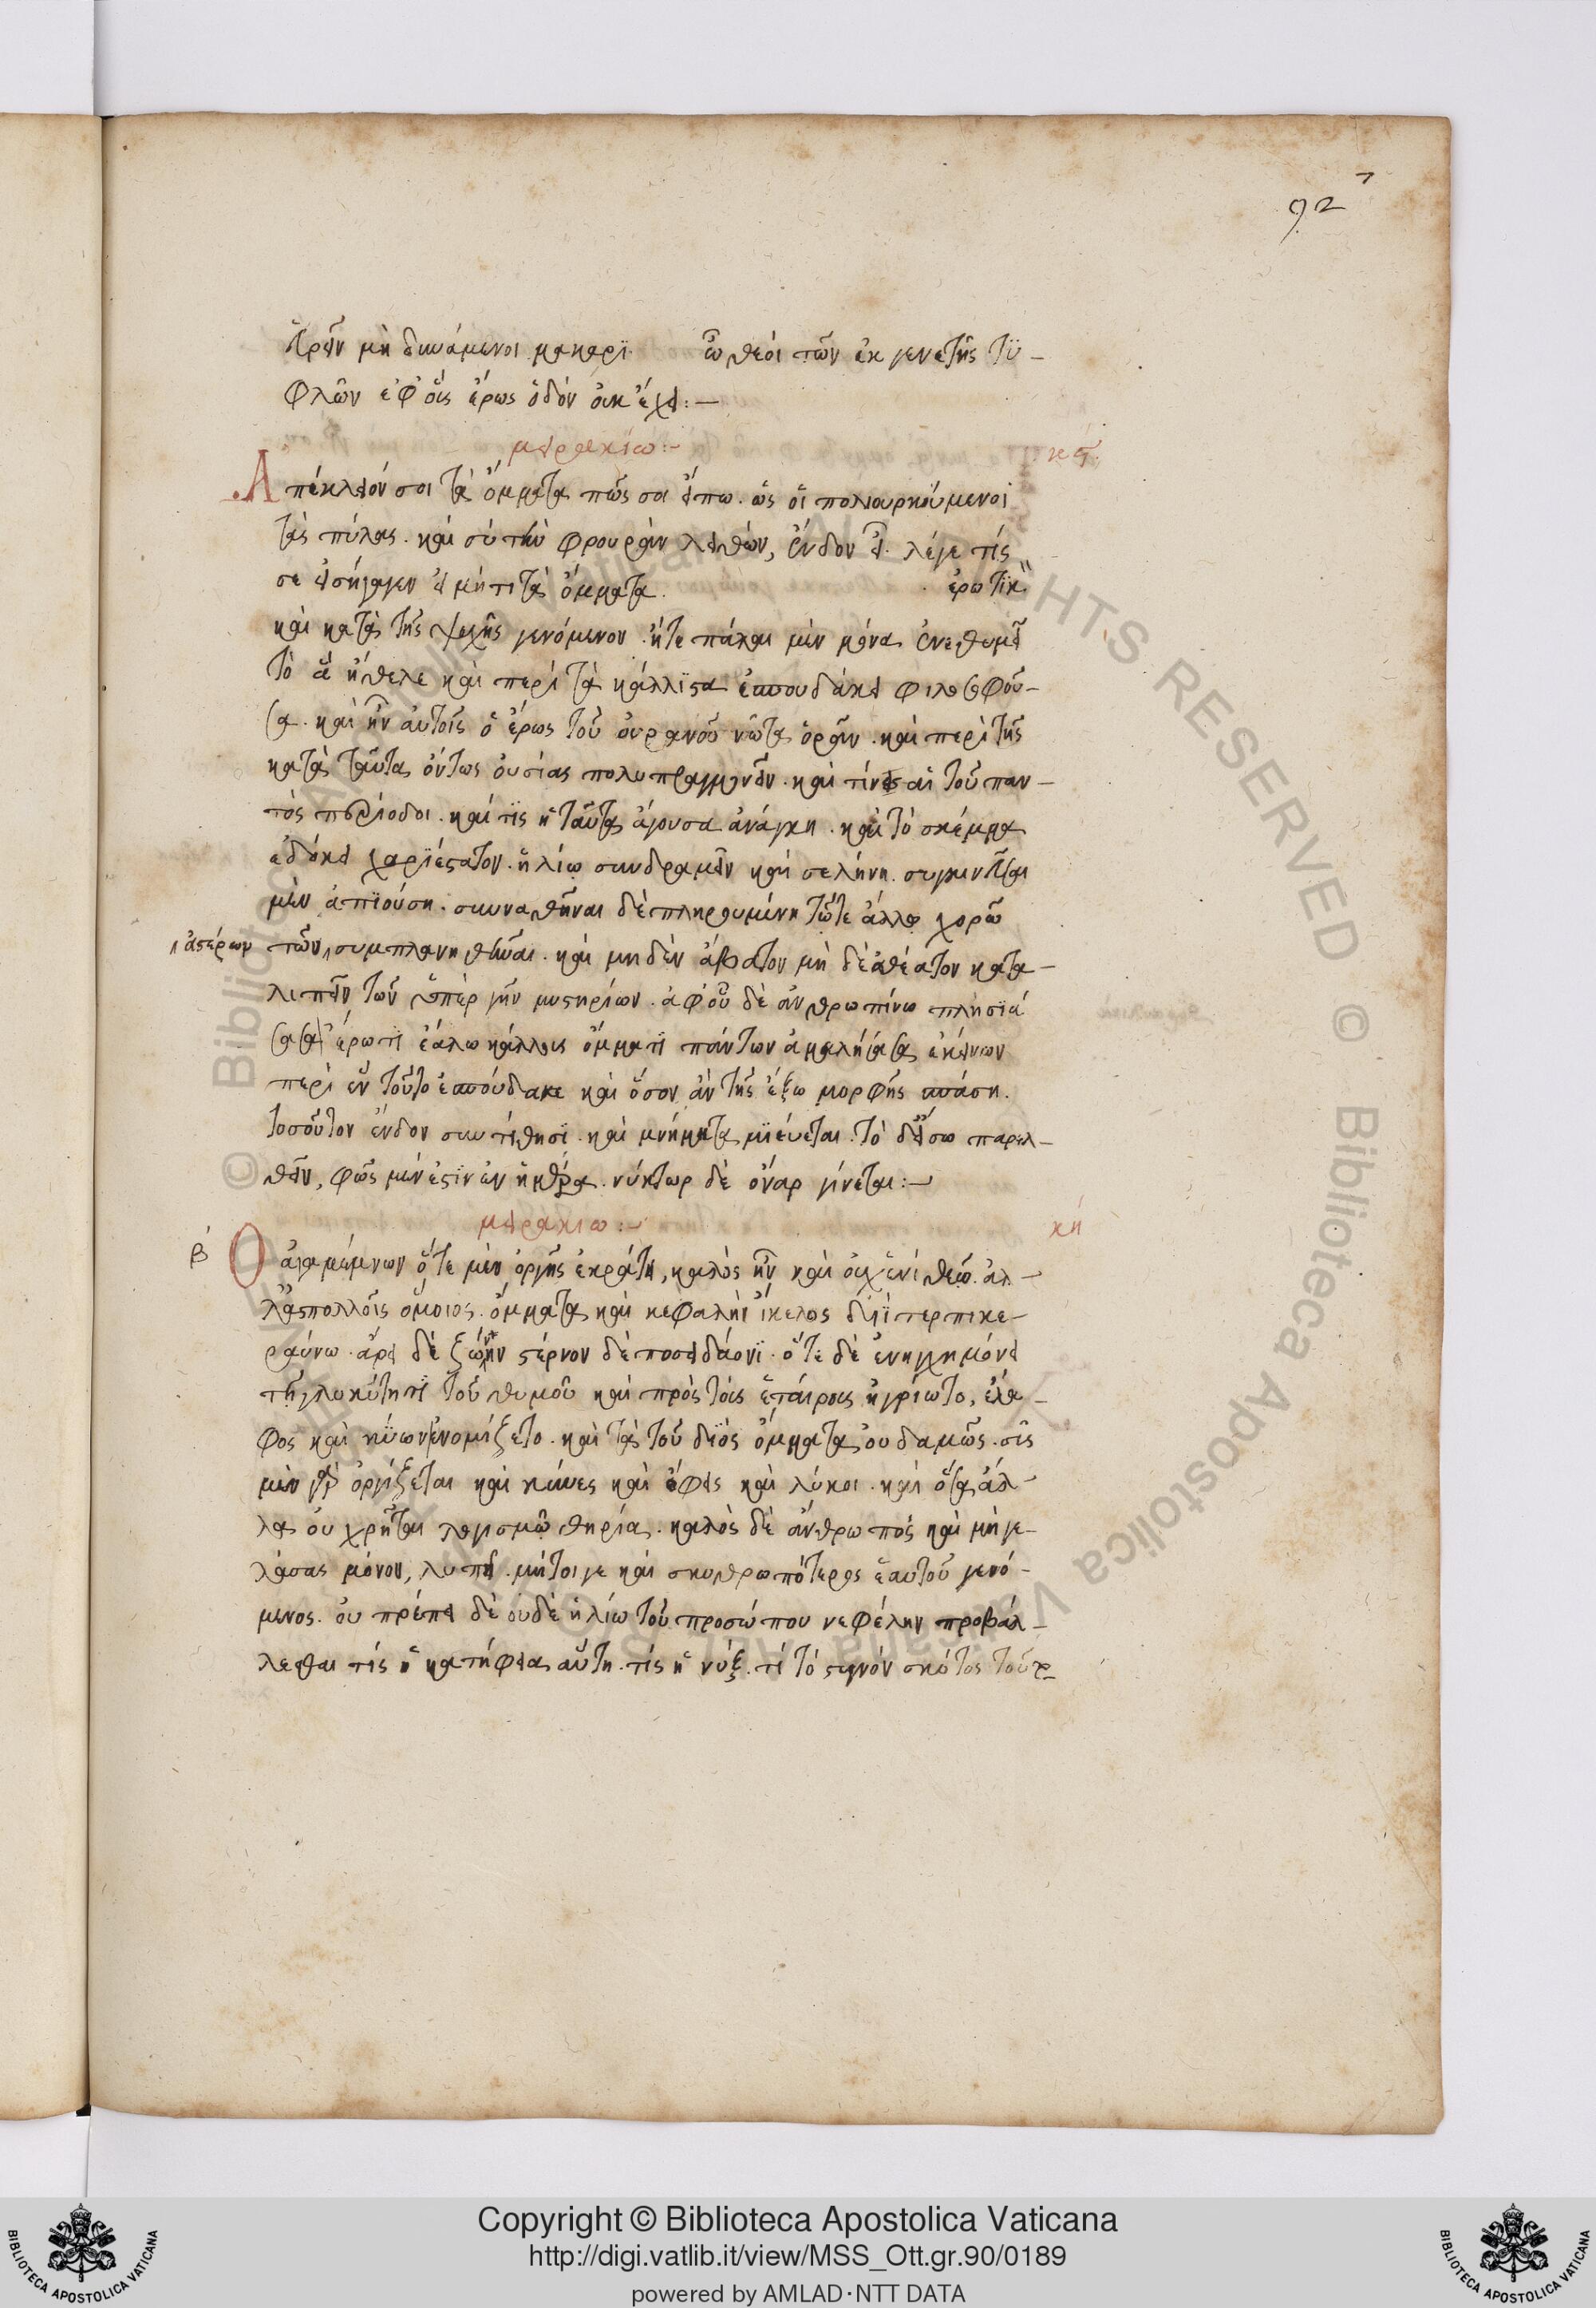 92
τηρεῖν μὴ δυνάμενοι μακαρι ὦ θεοὶ τῶν ἐκ γενετῆς τυ-
φλῶν ἐφ' οἷς ἔρως ὁδὸν οὐκ ἔχει:—
μειρακίω:—
κζ
Ἀπέκλειόν σοι τὰ ὄμματα πῶς σοι εἴπω. ὡς οἱ πολιορκούμενοι
τὰς πύλας. καὶ σὺ τὴν φρουρὰν λαθὼν, ἔνδον εἶ. λέγε τίς
σε εἰσήγαγεν εἰ μήτι τὰ ὄμματα. ἐρωτικ
καὶ κατὰ τῆς ψυχῆς γενόμενον. ἥτε πάλαι μὲν μόνα ἐνεθυμεῖ
το ἃ ἤθελε καὶ περὶ τὰ κάλλιστα ἐσπουδάκει φιλοσοφοῦ-
σα. καὶ ἦν αὐτοῖς ὁ ἔρως τοῦ οὐρανοῦ νῶτα ὁρᾶν. καὶ περὶ τῆς
κατὰ ταῦτα ὄντως οὐσίας πολυπραγμονεῖν. καὶ τίνες αἱ τοῦ παν-
τὸς περίοδοι. καὶ τίς ἡ ταῦτα ἄγουσα ἀνάγκη. καὶ τὸ σκέμμα
ἐδόκει χαριέστατον. ἡλίω συνδραμεῖν καὶ σελήνη.
μὲν ἀπϊούση. συναχθῆναι δὲ πληρουμένη τῶτε ἄλλο χορῶ
ἀστέρων
τῶν συμπλανηθῆναι. καὶ μηδὲν ἄβατον μὴ δὲ ἀθέατον κατα-
λιπεῖν τῶν ὑπὲρ γῆν μυστηρίων. ἀφ' οὗ δὲ ἀνθρωπίνω πλησιά
σασα ἔρωτι ἑάλω κάλλους ὄμματι πάντων ἀμελήσασα ἐκείνων
περὶ ἓν τοῦτο ἐσπούδακε καὶ ὅσον ἂν τῆς ἔξω μορφῆς σπάση.
τοσοῦτον ἔνδον συντίθησϊ. καὶ μνήματα μϊεύεται. τὸ δ' εἴσω παρελ-
θεῖν, φῶς μέν ἐστιν ἐν ἡμέρα. νύκτωρ δὲ ὄναρ γίνεται:—
μειρακιω:—
κή
β
Ὁ ἀγαμέμνων ὅτε μὲν ὀργῆς ἐκράτει, καλὸς ἦν καὶ οὐχ ἑνὶ θεῶ. ἀλ-
λὰ πολλοῖς ὅμοιος. ὄμματα καὶ κεφαλὴν ἴκελος διῒ τερπικε-
ραύνω. ἄρεϊ δὲ ζώνην στέρνον δὲ ποσειδάονϊ. ὅτε δὲ
τοῦ θυμοῦ καὶ πρὸς τοὺς ἑταίρους ἠγρίωτο, ἔλα-
φος καὶ κύων ἐνομίζετο. καὶ τὰ τοῦ διὸς ὄμματα οὐδαμῶς. σῦς
μὲν γὰρ ὀργίζεται καὶ κύνες καὶ ὄφεις καὶ λύκοι. καὶ ὅσα ἄλ-
λα οὐ χρῆται λογισμῶ θηρία. καλὸς δὲ ἄνθρωπος καὶ μὴ γε-
λάσας μόνον, λυπεῖ. μήτοι γε καὶ σκυθρωπότερος ἑαυτοῦ γενό-
μενος. οὐ πρέπει δὲ οὐδὲ ἡλίω τοῦ προσώπου νεφέλην προβάλ-
λεσθαι τίς ἡ κατήφεια αὕτη. τίς ἡ νύξ. τί τὸ στυγνόν σκότος τοῦτο
Copyright © Biblioteca Apostolica Vaticana
http://digi.vatlib.it/view/MSS_Ott.gr.90/0189
powered by AMLAD·NTT DATA
BIBLIOTECA APOSTOLICA VATICANA
BIBLIOTECA APOSTOLICA VATICANA